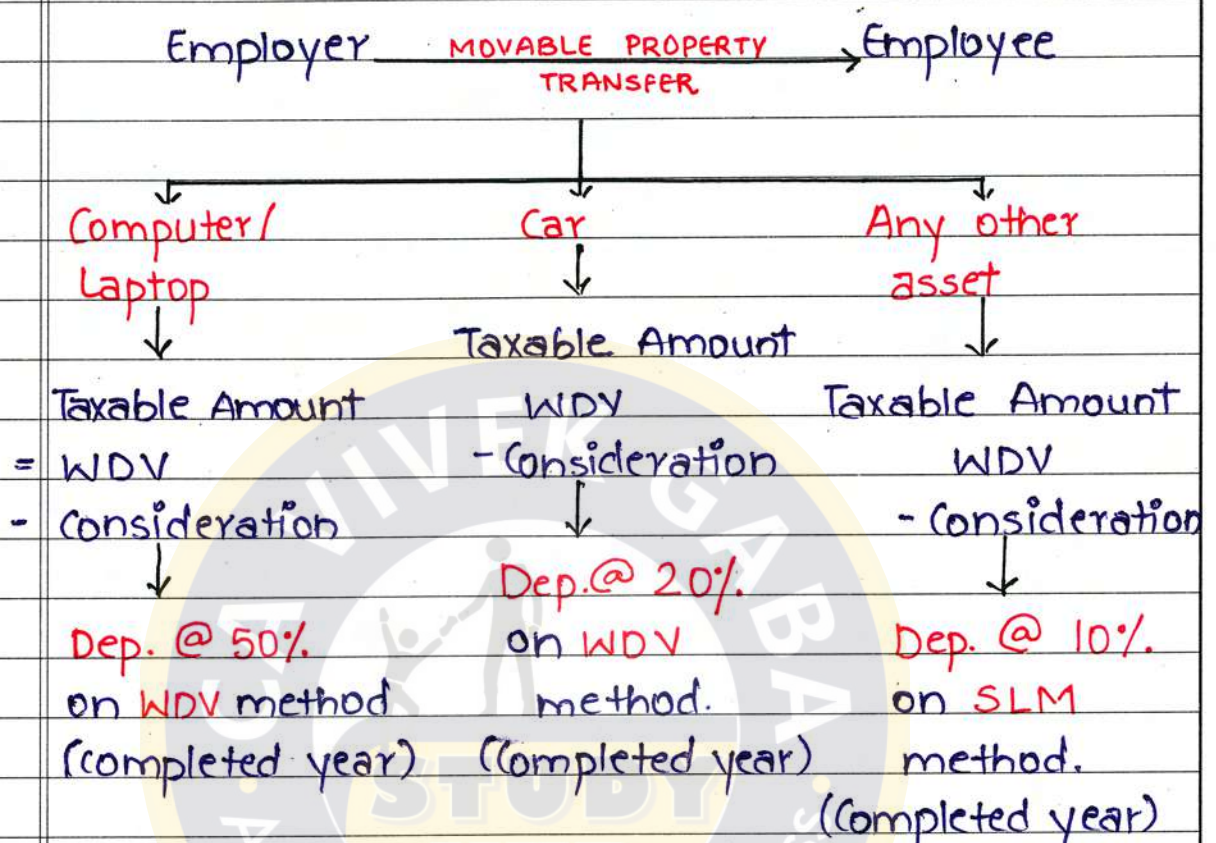 Employer MOVABLE PROPERTY TRANSFER Employee
Computer/
Laptop
Car
Any other
asset
Taxable Amount
= WDV
- Consideration
Dep. @ 50%.
on WDV method
(completed year)
Taxable Amount
WDV
- Consideration
Dep.@ 20%.
on WDV
method.
(Completed year)
Taxable Amount
WDV
- Consideration
Dep. @ 10%.
on SLM
method.
(Completed year)
VIVEK GABA
STUDY